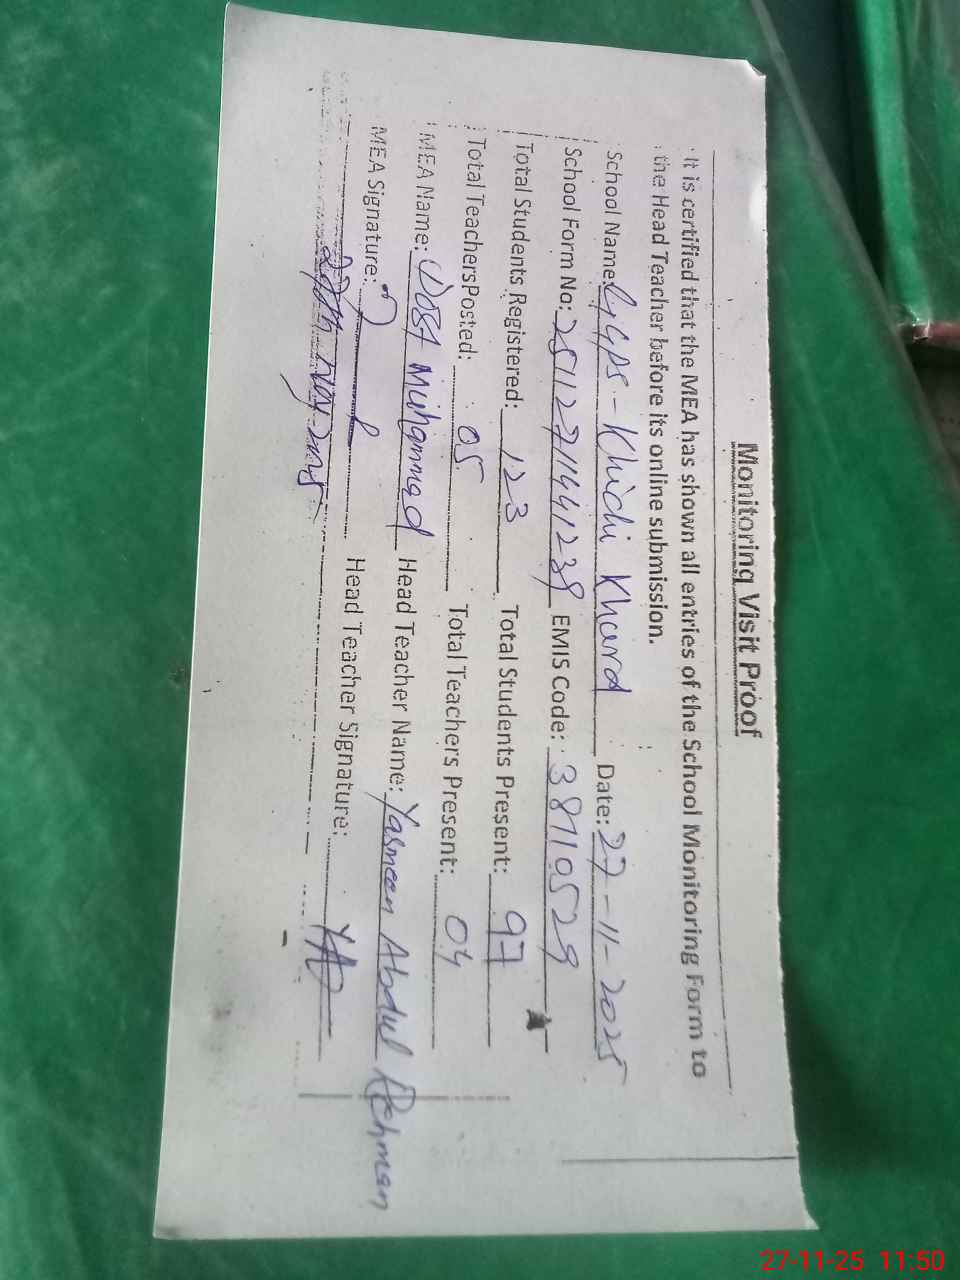 Monitoring Visit Proof
It is certified that the MEA has shown all entries of the School Monitoring Form to
the Head Teacher before its online submission.
School Name: GGPS - Khichi Khurd Date: 27-11-2025
School Form No: 2511271441239 EMIS Code: 38710529
Total Students Registered: 123 Total Students Present: 97
Total TeachersPosted: 05 Total Teachers Present: 04
MEA Name: Dost Muhammad Head Teacher Name: Yasmeen Abdul Rehman
MEA Signature: Head Teacher Signature:
27th Nov-2025
27-11-25 11:50